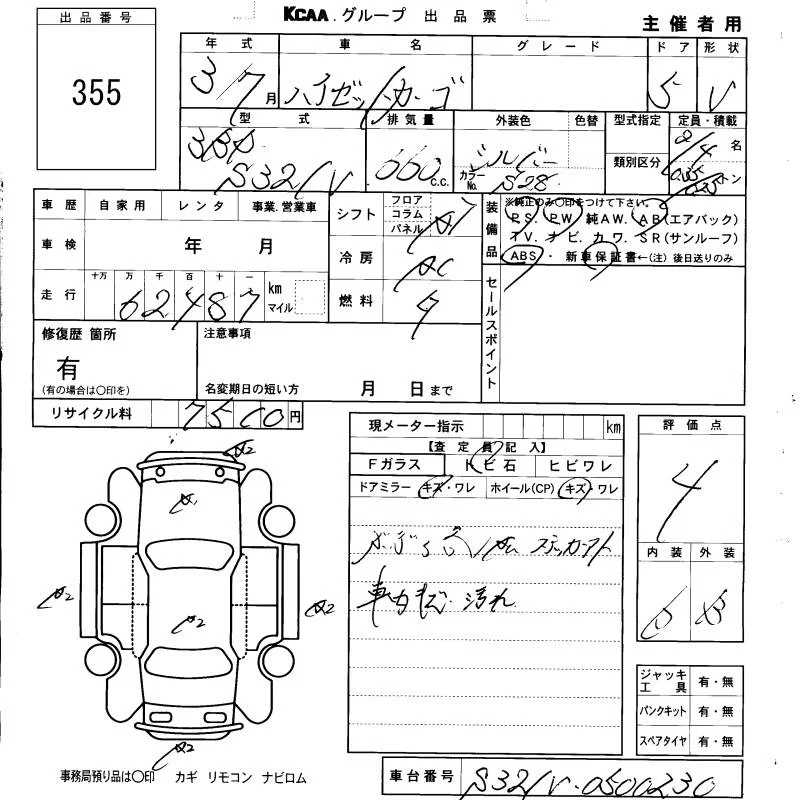 出品番号
355
KCAA.グループ 出品票
主催者用
年式 車名 グレード ドア 形状
3/7月 ハイゼットカーゴ 5 V
型式 排気量 外装色 色替 型式指定 定員・積載
3BD 660 c.c. シルバー 類別区分 2/4名
S321V カラーNo. S28 トン
車歴 自家用 レンタ 事業.営業車
車検 年 月
走行 十万 万 千 百 十 一 km マイル
62487
シフト フロア コラム パネル AT
冷房 AC
燃料
装備品
※純正のみ〇印をつけて下さい。
PS. PW. 純AW. AB(エアバック)
TV. ナビ. カワ. SR(サンルーフ)
ABS・ 新車保証書←(注) 後日送りのみ
セールスポイント
修復歴 箇所
有
(有の場合は〇印を)
注意事項
名変期日の短い方 月 日まで
リサイクル料 7500円
現メーター指示 km
【査定員記入】
Fガラス トビ石 ヒビワレ
ドアミラー キズ・ワレ ホイール(CP) キズ・ワレ
ステッカーアト
車内キズ・汚れ
評価点
4
内装 外装
B
ジャッキ工具 有・無
パンクキット 有・無
スペアタイヤ 有・無
A2
A1
A2 A2 A2
A2
事務局預り品は〇印 カギ リモコン ナビロム
車台番号 S321V-0500230